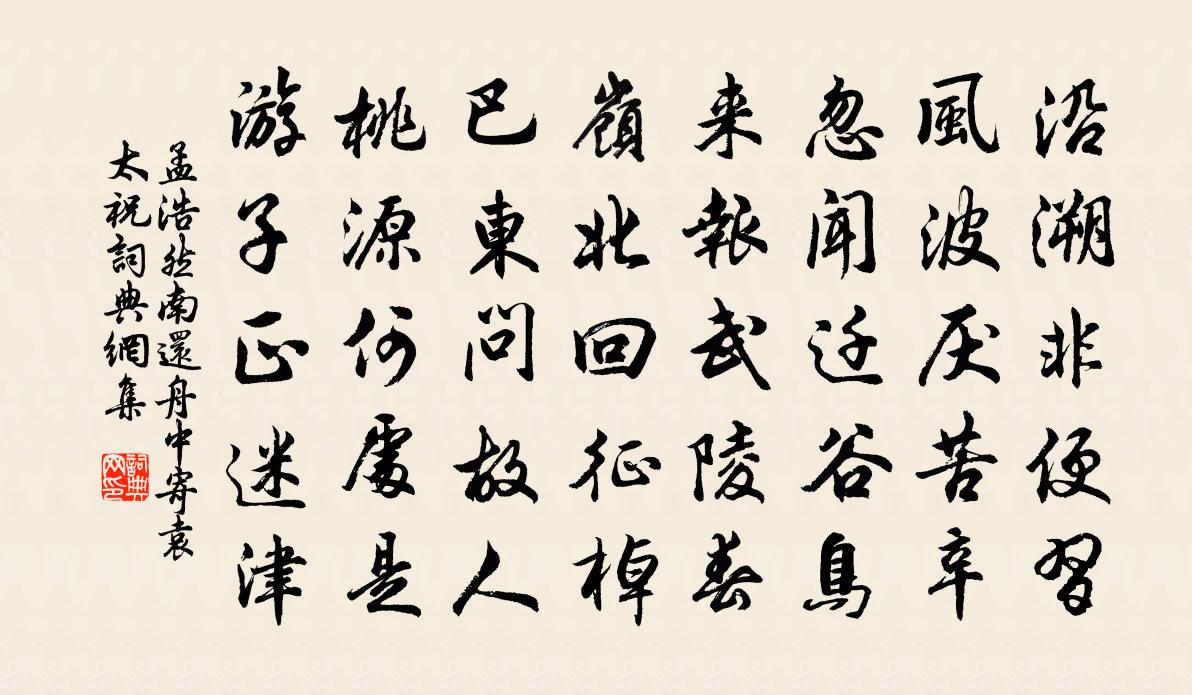 沿溯非便習
風波厌苦辛
忽闻迁谷鳥
来報武陵春
嶺北回征棹
巴東問故人
桃源何處是
游子正迷津
孟浩然南還舟中寄袁
太祝詞典網集
詞典网印